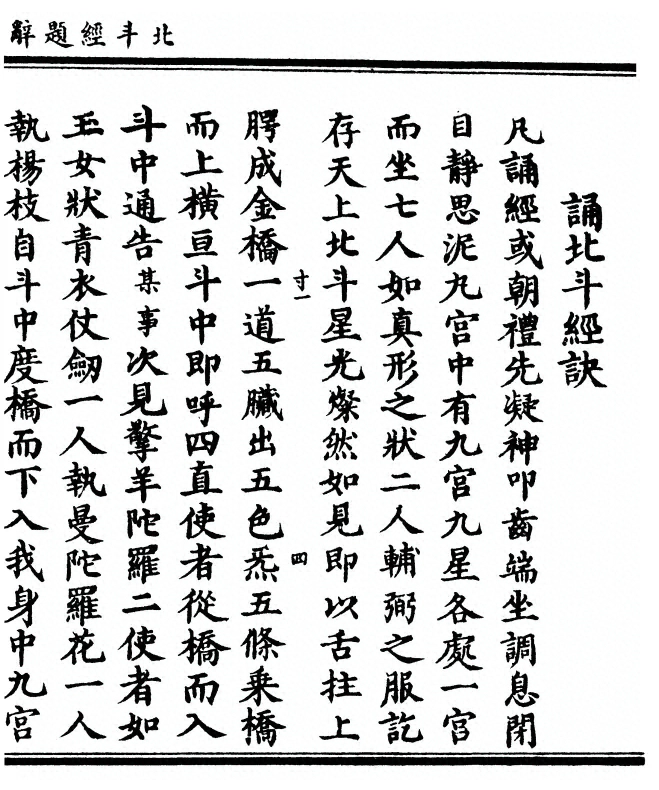 北斗經題辭
誦北斗經訣
凡誦經或朝禮先凝神叩齒端坐調息閉
目靜思泥丸宮中有九宮九星各處一宮
而坐七人如真形之狀二人輔弼之服訖
存天上北斗星光燦然如見即以舌拄上
寸一
四
腭成金橋一道五臟出五色炁五條乘橋
而上橫亘斗中即呼四直使者從橋而入
斗中通告某事次見擎羊陀羅二使者如
玉女狀青衣仗劒一人執曼陀羅花一人
執楊枝自斗中度橋而下入我身中九宮